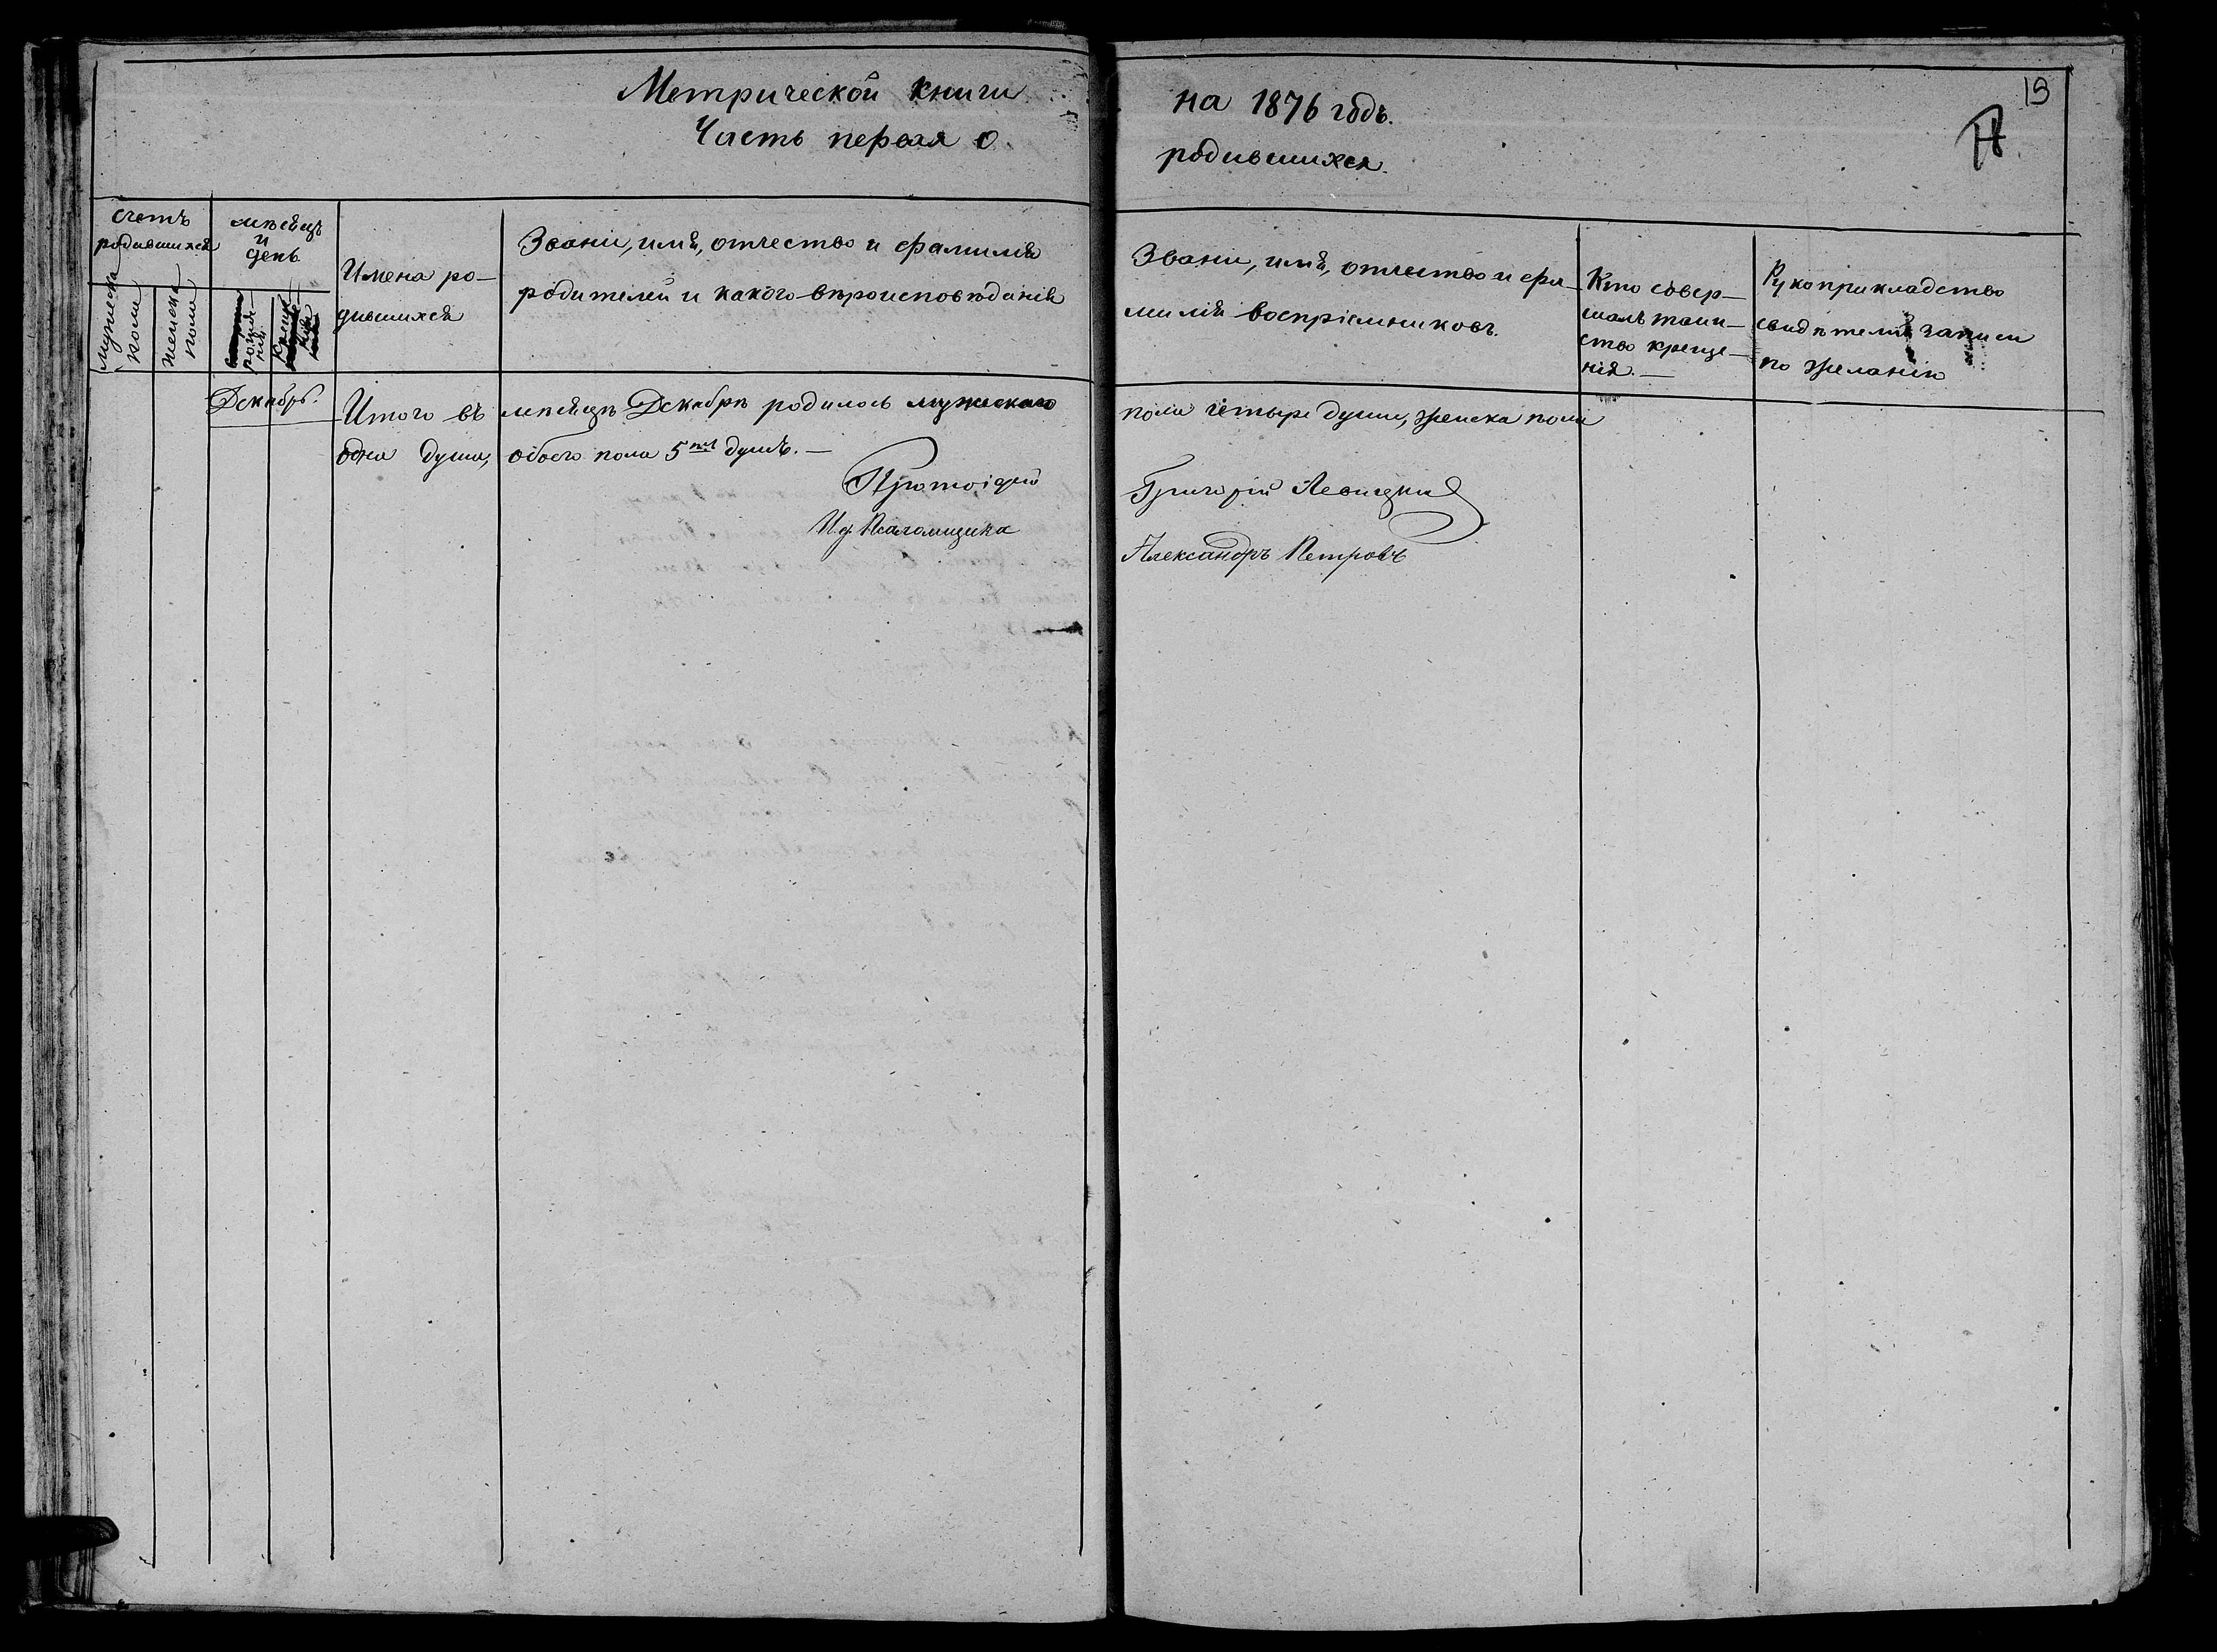 Метрической книги на 1876 годъ.
Часть первая о родившихся.
19
счетъ
родившихся
мужеска
пола
женска
пола
мѣсяцъ
и
день
рожде-
нія
Креще-
нія
Имена ро-
дившихся
Званіе, имя, отчество и фамилія
родителей и какого вѣроисповѣданія
Званіе, имя, отчество и фа-
милія воспріемниковъ.
Кто совер-
шалъ таин-
ство креще-
нія.
Рукоприкладство
свидѣтелей записи
по желанію
Декабрь.
Итого въ мѣсяцѣ Декабрѣ родилось мужескаго пола четыре души, женска пола
одна душа, обоего пола 5ть душъ.
Протоіерей Григорій Левицкій
И. д. Псаломщика Александръ Петровъ